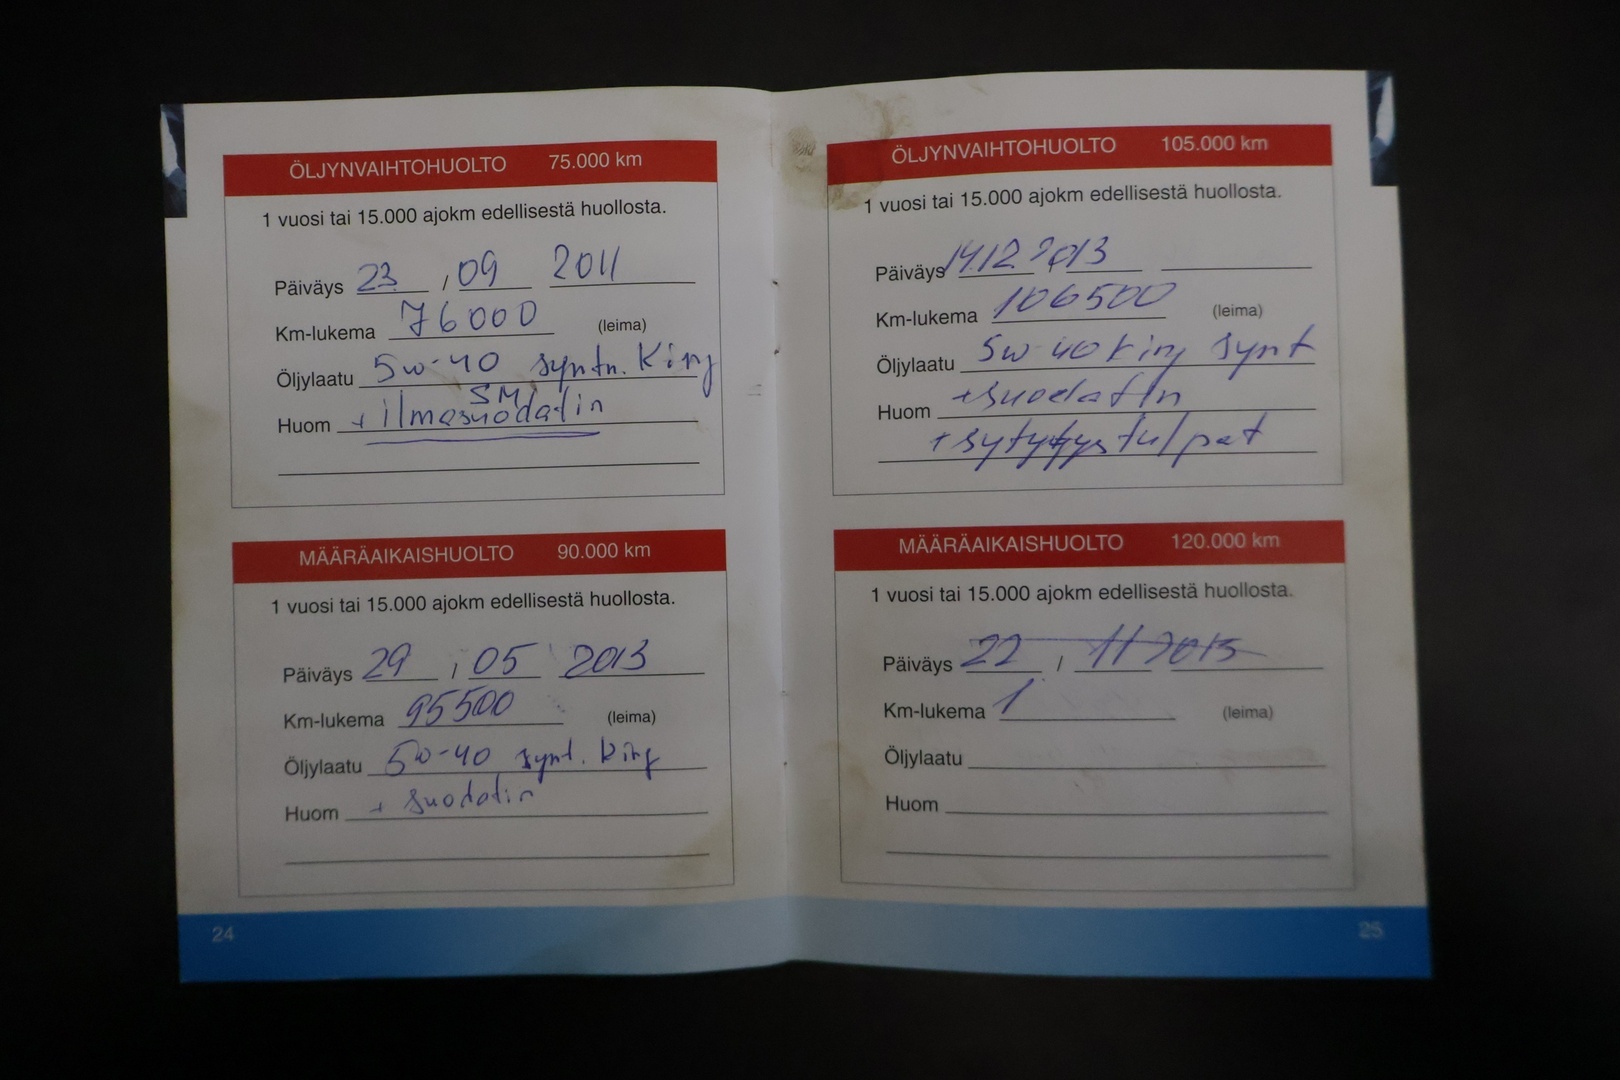 ÖLJYNVAIHTOHUOLTO 75.000 km
1 vuosi tai 15.000 ajokm edellisestä huollosta.
Päiväys 23 / 09 2011
Km-lukema 76000 (leima)
Öljylaatu 5w-40 syntn. King
SM
Huom + ilmasuodatin
MÄÄRÄAIKAISHUOLTO 90.000 km
1 vuosi tai 15.000 ajokm edellisestä huollosta.
Päiväys 29 / 05 2013
Km-lukema 95500 (leima)
Öljylaatu 5w-40 synt. King
Huom + suodatin
24
ÖLJYNVAIHTOHUOLTO 105.000 km
1 vuosi tai 15.000 ajokm edellisestä huollosta.
Päiväys 14.12 2013
Km-lukema 106500 (leima)
Öljylaatu 5w-40 King synt
Huom +suodatin
+sytytystulpat
MÄÄRÄAIKAISHUOLTO 120.000 km
1 vuosi tai 15.000 ajokm edellisestä huollosta.
Päiväys 22 / 11 2015
Km-lukema 1 (leima)
Öljylaatu
Huom
25